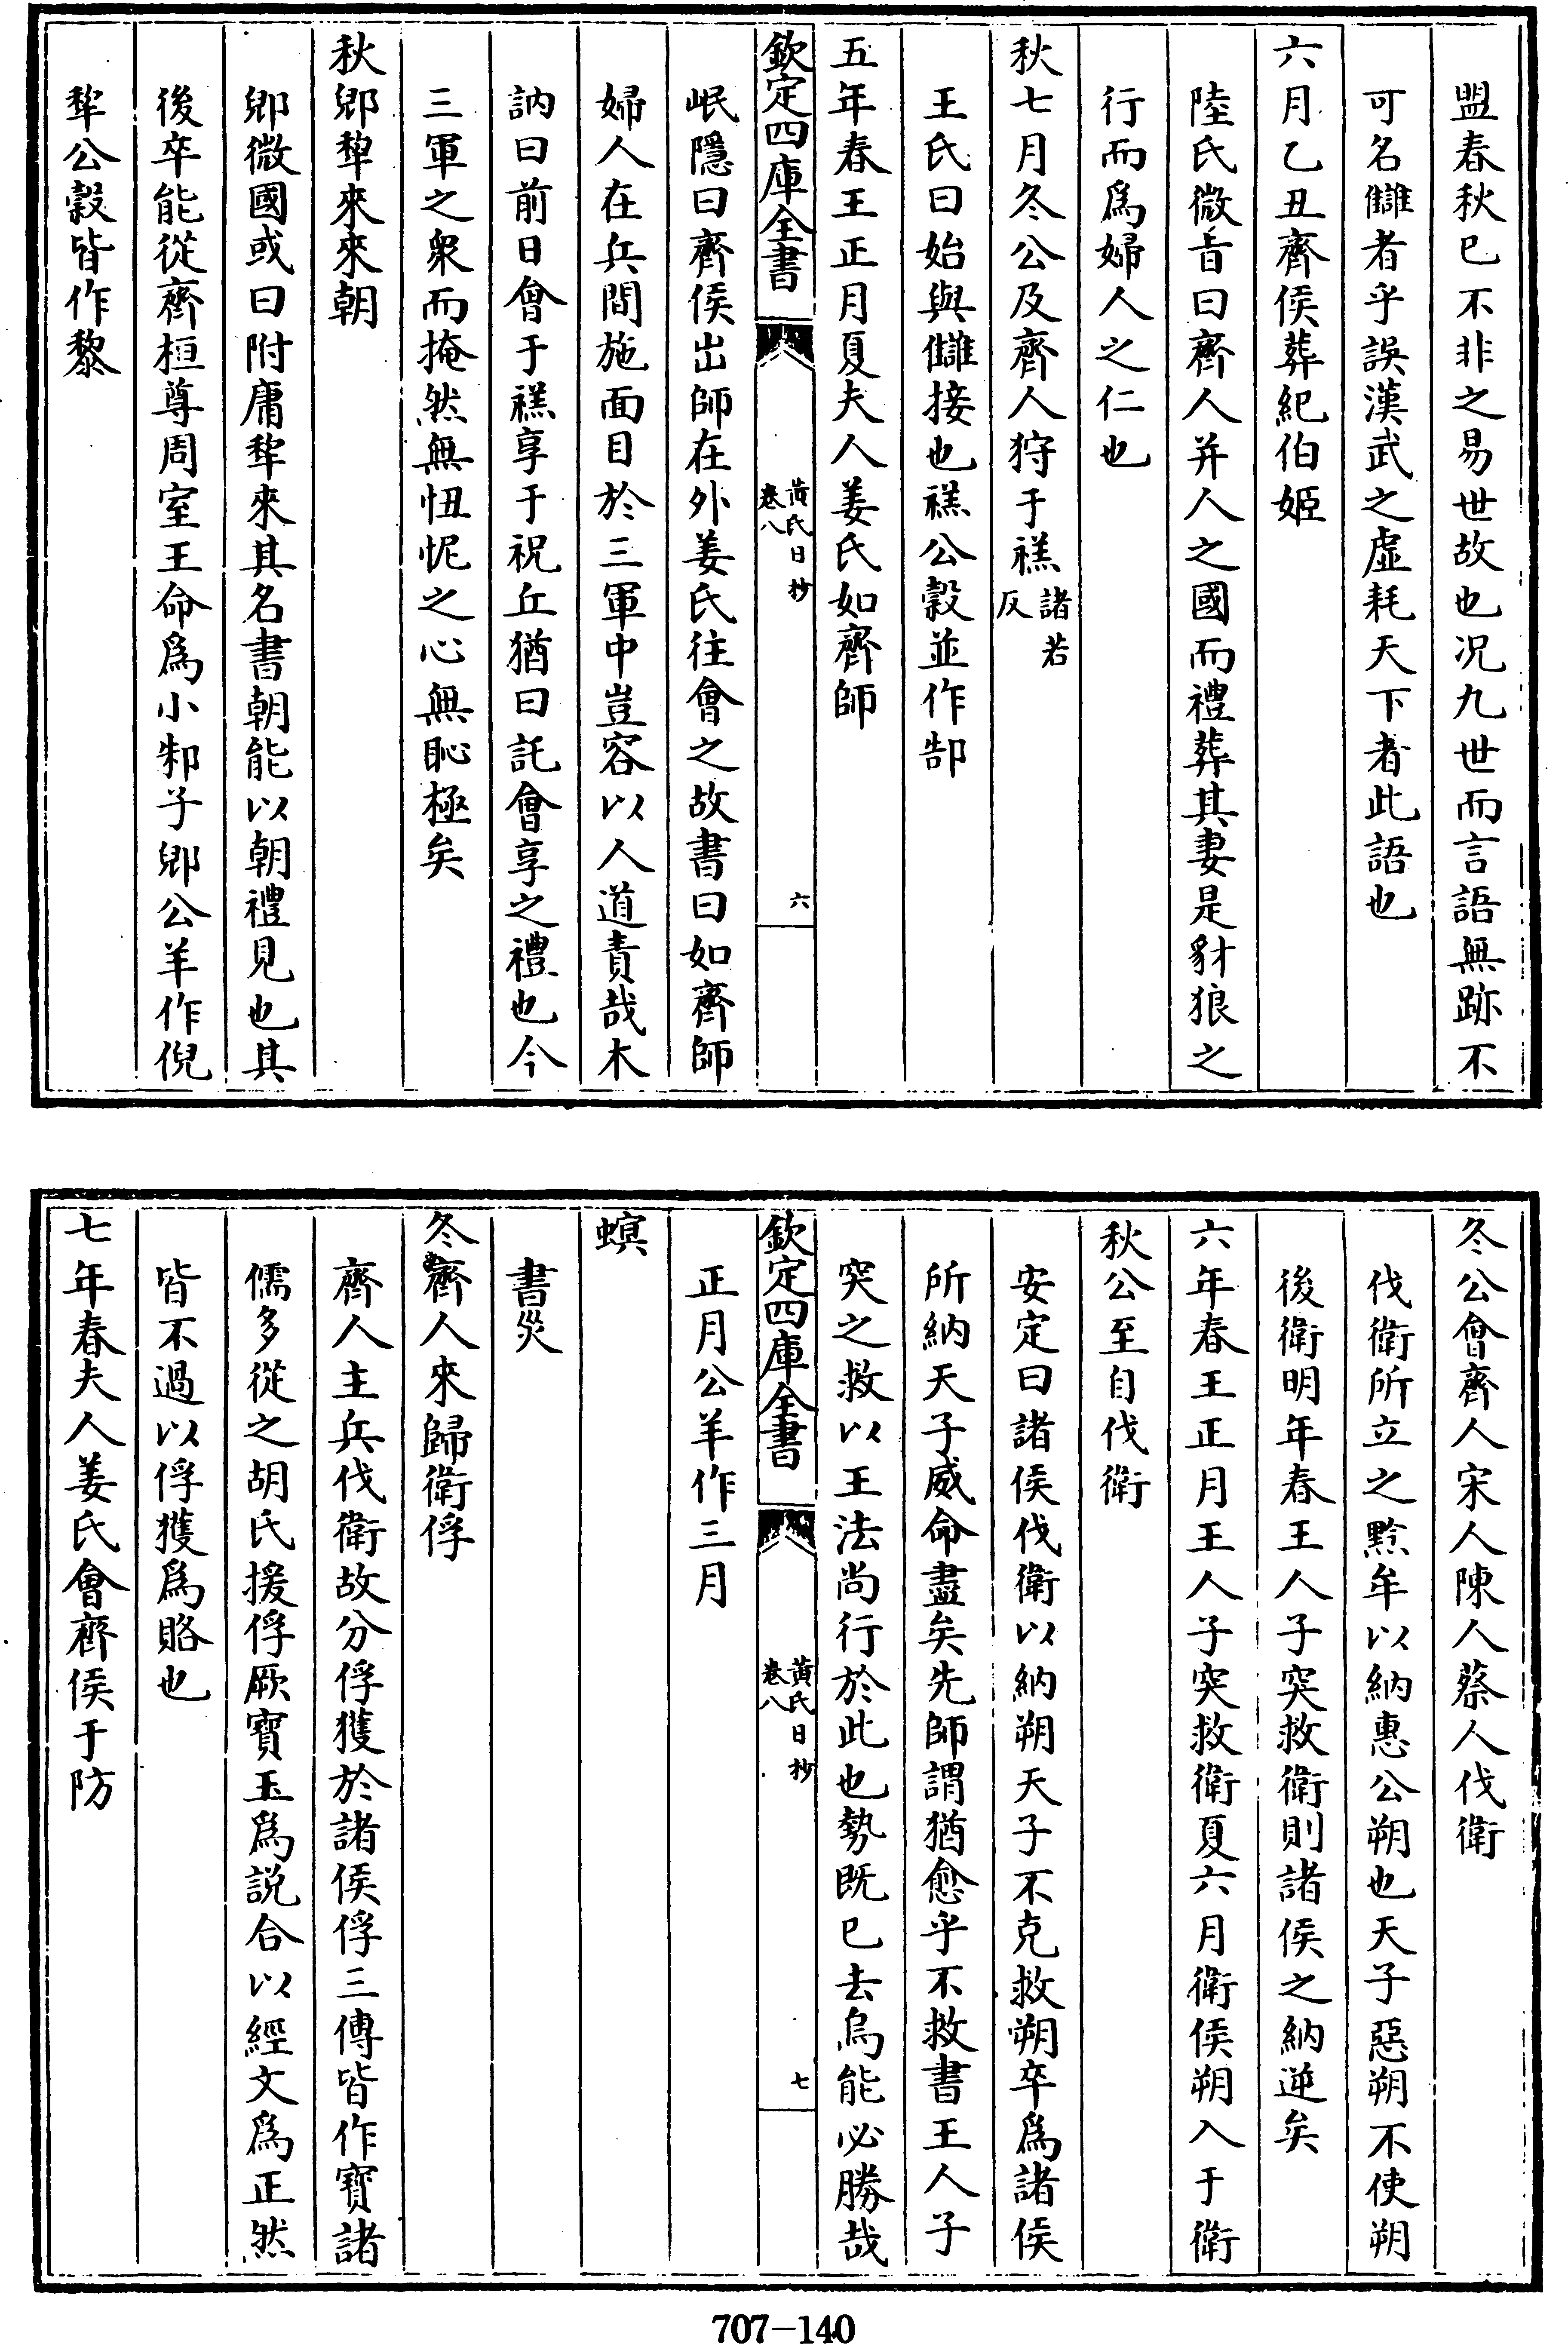 盟春秋已不非之易世故也况九世而言語無跡不
可名讎者乎誤漢武之虛耗天下者此語也
六月乙丑齊侯葬紀伯姬
陸氏微旨曰齊人并人之國而禮葬其妻是豺狼之
行而爲婦人之仁也
秋七月冬公及齊人狩于禚諸若反
王氏曰始與讎接也禚公穀並作郜
五年春王正月夏夫人姜氏如齊師
欽定四庫全書 黃氏日抄 卷八 六
岷隱曰齊侯出師在外姜氏往會之故書曰如齊師
婦人在兵間施面目於三軍中豈容以人道責哉木
訥曰前日會于禚享于祝丘猶曰託會享之禮也今
三軍之衆而掩然無忸怩之心無恥極矣
秋郳犂來來朝
郳微國或曰附庸犂來其名書朝能以朝禮見也其
後卒能從齊桓尊周室王命爲小邾子郳公羊作倪
犂公穀皆作黎
冬公會齊人宋人陳人蔡人伐衛
伐衛所立之黔牟以納惠公朔也天子惡朔不使朔
後衛明年春王人子突救衛則諸侯之納逆矣
六年春王正月王人子突救衛夏六月衛侯朔入于衛
秋公至自伐衛
安定曰諸侯伐衛以納朔天子不克救朔卒爲諸侯
所納天子威命盡矣先師謂猶愈乎不救書王人子
突之救以王法尚行於此也勢既已去烏能必勝哉
欽定四庫全書 黃氏日抄 卷八 七
正月公羊作三月
螟
書災
冬齊人來歸衛俘
齊人主兵伐衛故分俘獲於諸侯俘三傳皆作寳諸
儒多從之胡氏援俘厥寳玉爲説合以經文爲正然
皆不過以俘獲爲賂也
七年春夫人姜氏會齊侯于防
707-140